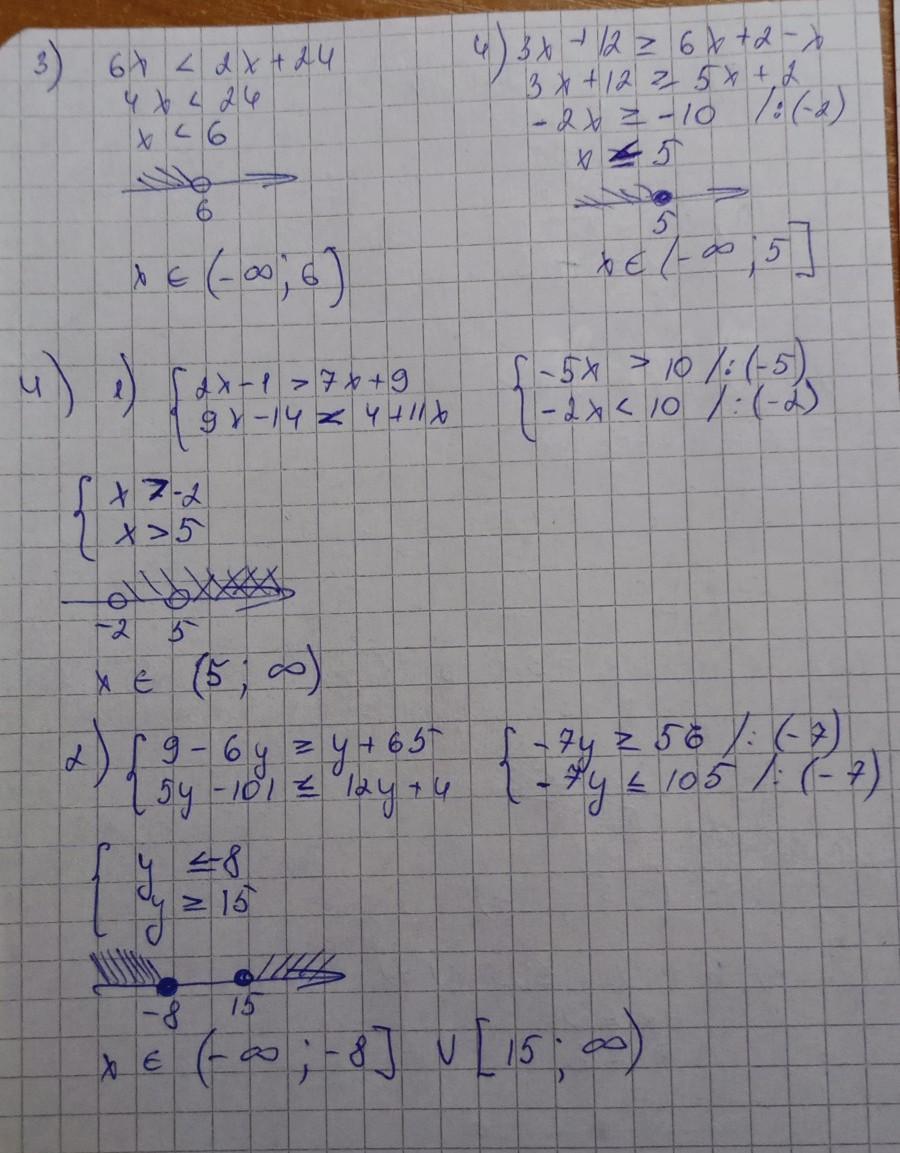 3) 6x < 2x+24
4x < 24
x < 6
6
x ∈ (-∞; 6)
4) 3x+12 ≥ 6x+2-x
3x+12 ≥ 5x+2
-2x ≥ -10 /:(-2)
x ≤ 5
5
x ∈ (-∞; 5]
4) 1) { 2x-1 > 7x+9 { -5x > 10 /:(-5)
9x-14 < 4+11x -2x < 10 /:(-2)
{ x > -2
x > 5
-2 5
x ∈ (5; ∞)
2) { 9-6y ≥ y+65 { -7y ≥ 56 /:(-7)
5y-101 ≤ 12y+4 -7y ≤ 105 /:(-7)
{ y ≤ -8
y ≥ 15
-8 15
x ∈ (-∞; -8] ∪ [15; ∞)